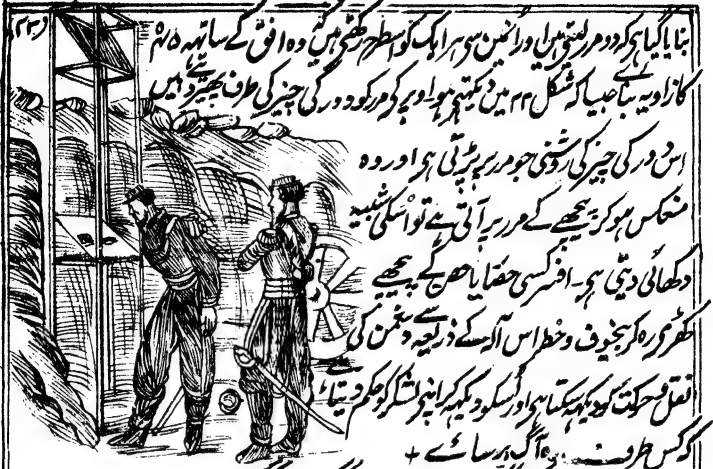 (۲۲)
بنایا گیا ہی کہ دو مرر لیتی ہیں اور اُنمین سی ہر ایک کو اسطرح رکھتی ہیں کہ وہ افق کے ساتھہ ۴۵
کا زاویہ بناے جیسا کہ شکل ۲۲ میں دیکھتی ہو۔ اوپر کی مرر کو دور کی چیز کی طرف پھیر دیتے ہیں
اس دور کی چیز کی روشنی جو مرر پر پڑتی ہی اور وہ
منعکس ہو کر پیچھے کے مرر پر آتی ہے تو اُسکی شبیہ
دکھائی دیتی ہی۔ افسر کسی یا حصن کے پیچھے
کھڑی رہ کر بیخوف و خطر اس آلہ کے ذریعہ سے دشمن کی
نقل و حرکت کو دیکھہ سکتا ہی اور اُسکو دیکھہ کر اپنی لشکر کو حکم دیتا ہے
کہ کس طرف آگ برساے +